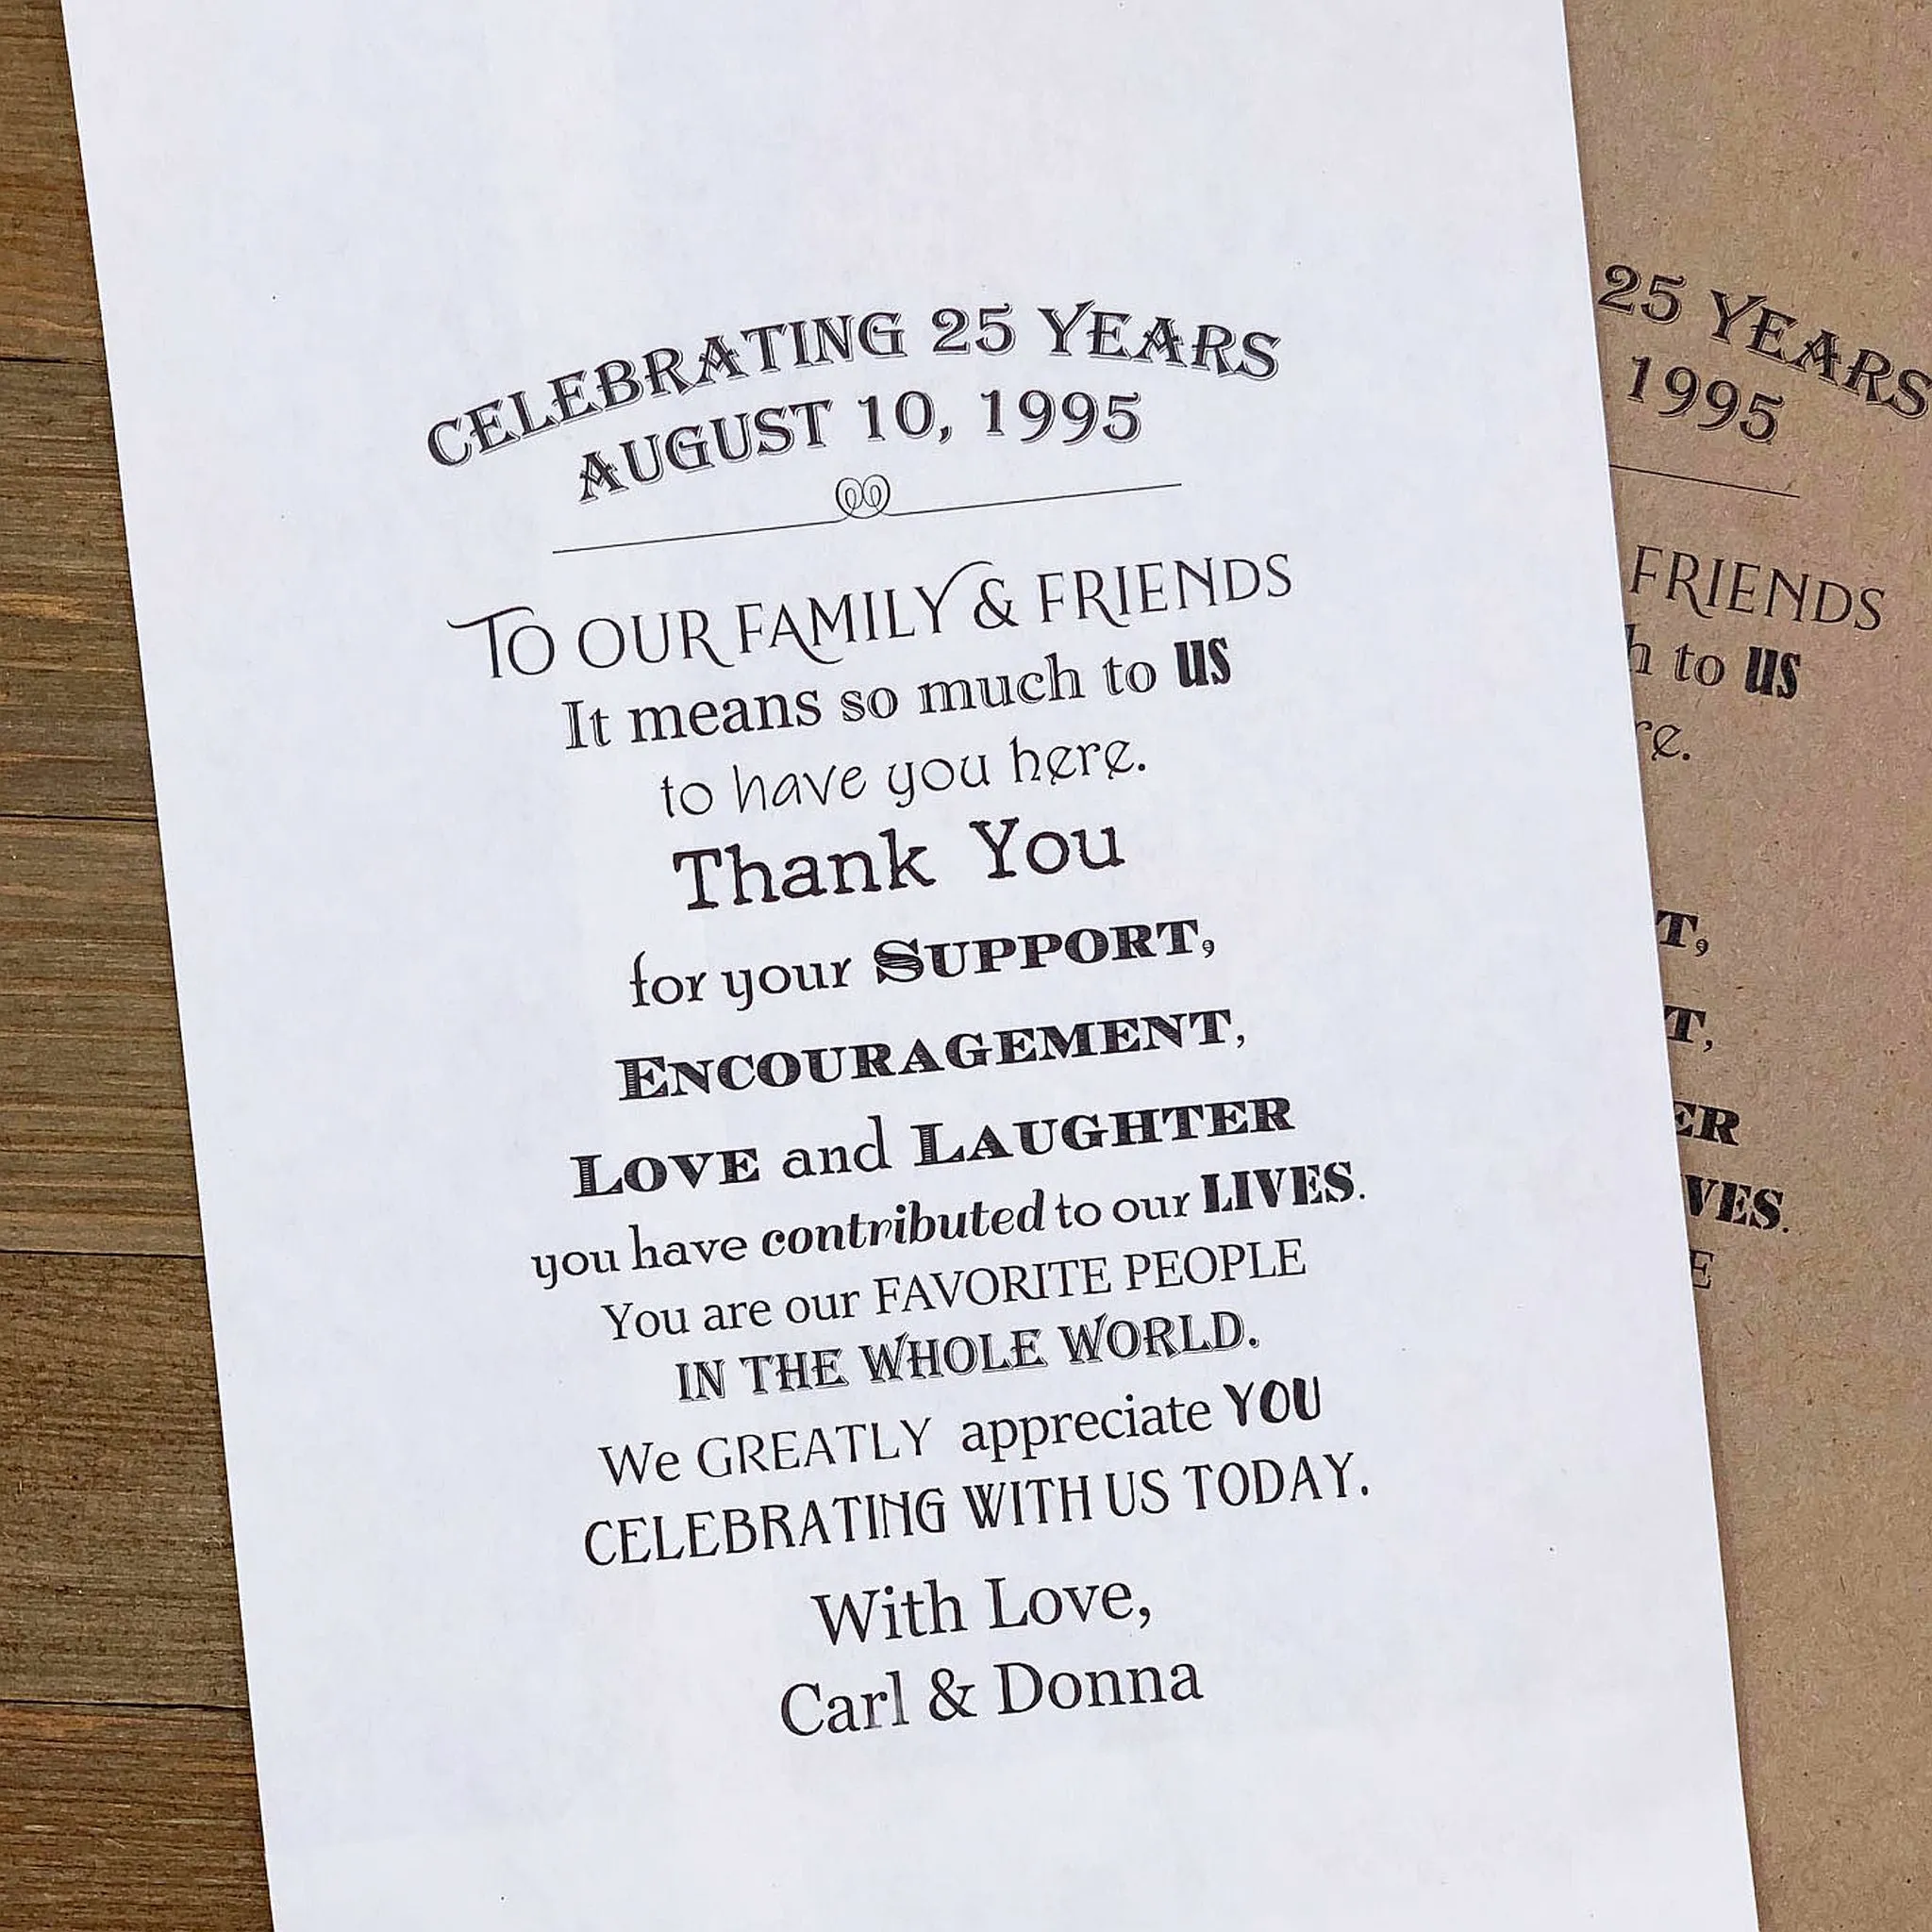 CELEBRATING 25 YEARS
AUGUST 10, 1995
TO OUR FAMILY & FRIENDS
It means so much to us
to have you here.
Thank You
for your SUPPORT,
ENCOURAGEMENT,
LOVE and LAUGHTER
you have contributed to our LIVES.
You are our FAVORITE PEOPLE
IN THE WHOLE WORLD.
We GREATLY appreciate YOU
CELEBRATING WITH US TODAY.
With Love,
Carl & Donna
25 YEARS
1995
FRIENDS
to us